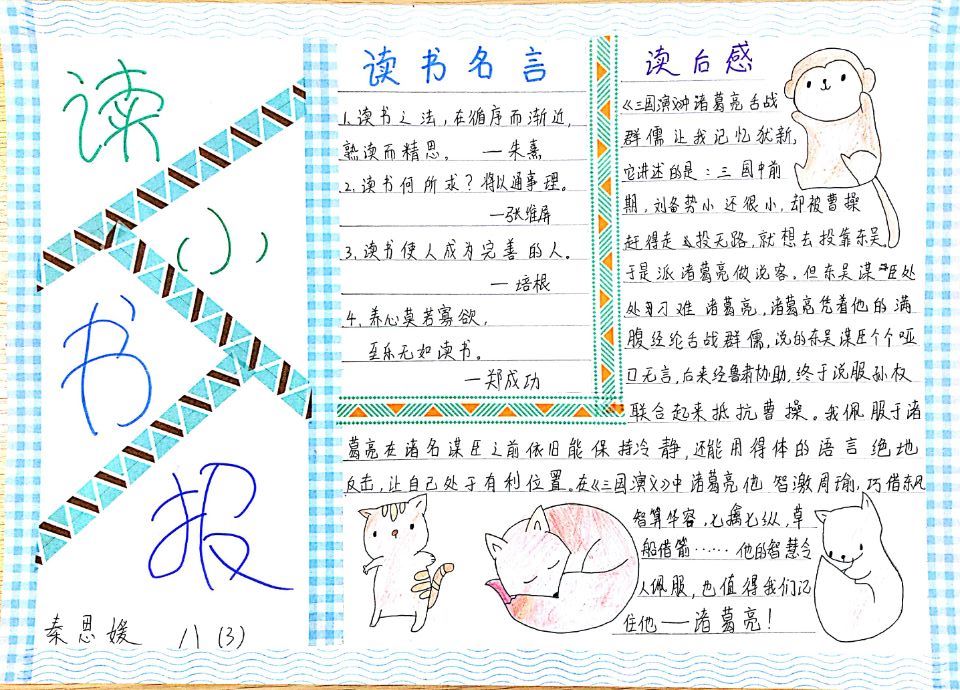 读
小
书
报
秦思媛 八(3)
读书名言
1.读书之法,在循序而渐进,
熟读而精思。 —朱熹
2.读书何所求?将以通事理。
—张维屏
3.读书使人成为完善的人。
—培根
4.养心莫若寡欲,
至乐无如读书。
—郑成功
读后感
《三国演义》中诸葛亮舌战
群儒让我记忆犹新,
它讲述的是:三国中前
期,刘备势小还很小,却被曹操
赶得走投无路,就想去投靠东吴。
于是派诸葛亮做说客。但东吴谋臣处
处刁难诸葛亮,诸葛亮凭着他的满
腹经纶舌战群儒,说的东吴谋臣个个哑
口无言,后来经鲁肃协助,终于说服孙权
联合起来抵抗曹操。我佩服于诸
葛亮在诸名谋臣之前依旧能保持冷静,还能用得体的语言绝地
反击,让自己处于有利位置。在《三国演义》中诸葛亮他智激周瑜,巧借东风
智算华容,七擒七纵,草
船借箭……他的智慧令
人佩服,也值得我们记
住他——诸葛亮!